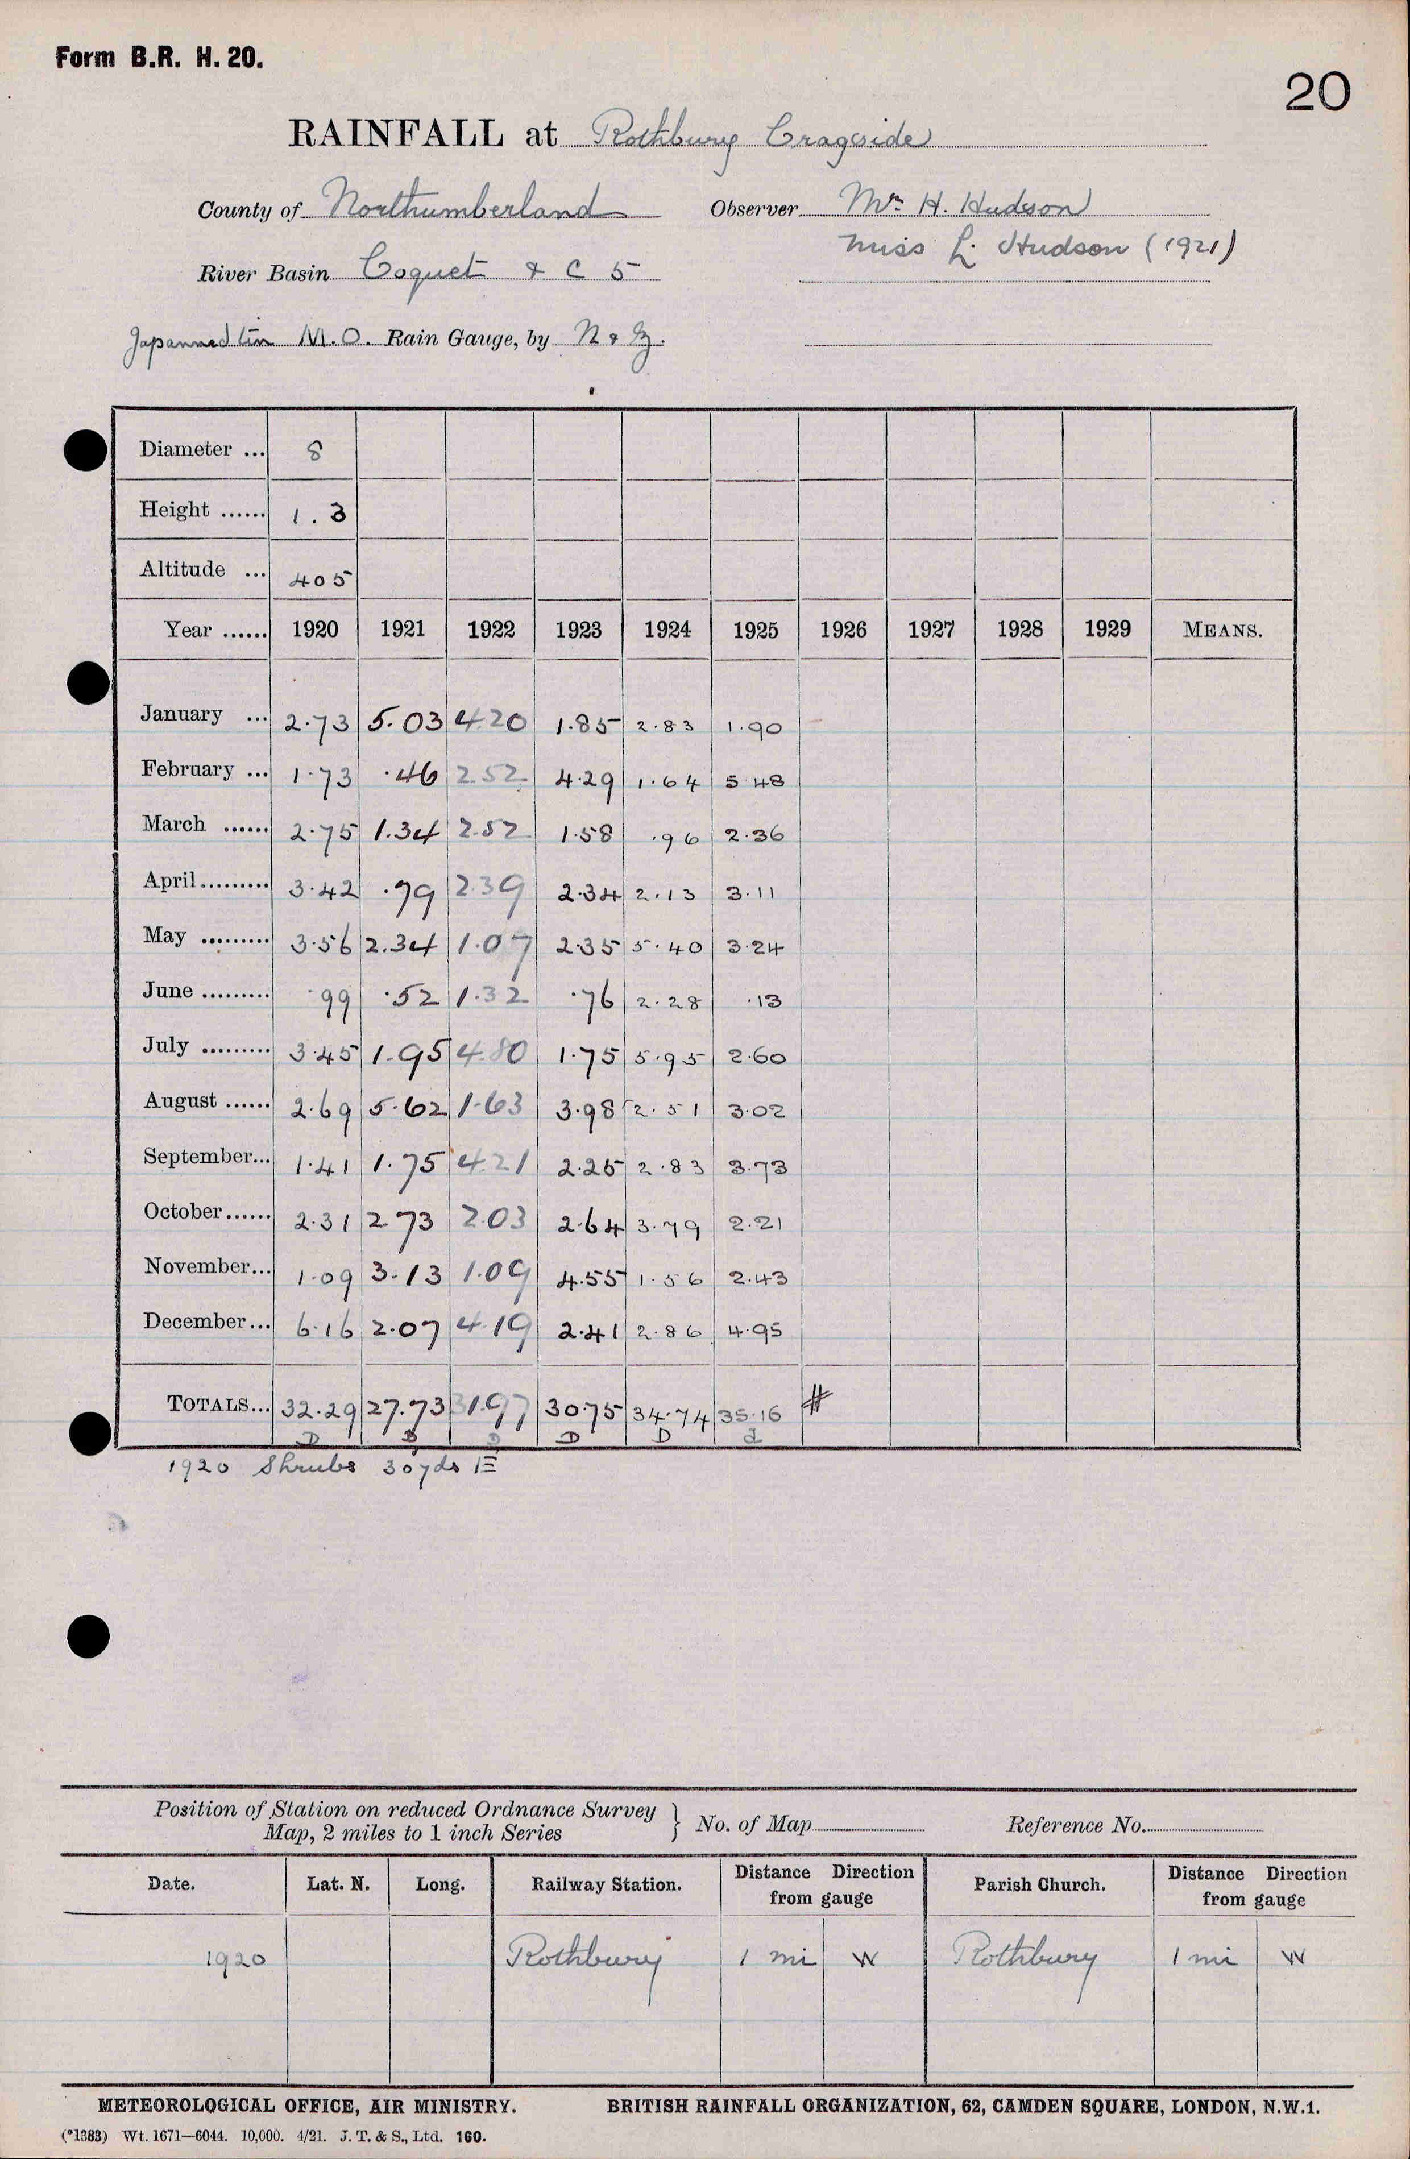 Form B.R. H. 20.
20
RAINFALL at Rothbury Cragside
County of Northumberland Observer Mr. H. Hudson
Miss L. Hudson (1921)
River Basin Coquet & C 5
Japanned tin M.O. Rain Gauge, by N & Z.
Diameter ... 8
Height ...... 1.3
Altitude ... 405
Year ...... 1920 1921 1922 1923 1924 1925 1926 1927 1928 1929 MEANS.
January ... 2.73 5.03 4.20 1.85 2.83 1.90
February ... 1.73 .46 2.52 4.29 1.64 5.48
March ...... 2.75 1.34 2.52 1.58 .96 2.36
April......... 3.42 .79 2.39 2.34 2.13 3.11
May ......... 3.56 2.34 1.07 2.35 5.40 3.24
June ......... .99 .52 1.32 .76 2.28 .13
July ......... 3.45 1.95 4.80 1.75 5.95 2.60
August ...... 2.69 5.62 1.63 3.98 2.51 3.02
September... 1.41 1.75 4.21 2.25 2.83 3.73
October...... 2.31 2.73 2.03 2.64 3.79 2.21
November... 1.09 3.13 1.09 4.55 1.56 2.43
December... 6.16 2.07 4.19 2.41 2.86 4.95
TOTALS... 32.29 27.73 31.97 30.75 34.74 35.16 #
D D D D D d
1920 Shrubs 30yds E
Position of Station on reduced Ordnance Survey Map, 2 miles to 1 inch Series } No. of Map Reference No.
Date. Lat. N. Long. Railway Station. Distance Direction from gauge Parish Church. Distance Direction from gauge
1920 Rothbury 1 mi W Rothbury 1 mi W
METEOROLOGICAL OFFICE, AIR MINISTRY. BRITISH RAINFALL ORGANIZATION, 62, CAMDEN SQUARE, LONDON, N.W.1.
(*1383) Wt. 1671—6044. 10,000. 4/21. J. T. & S., Ltd. 160.